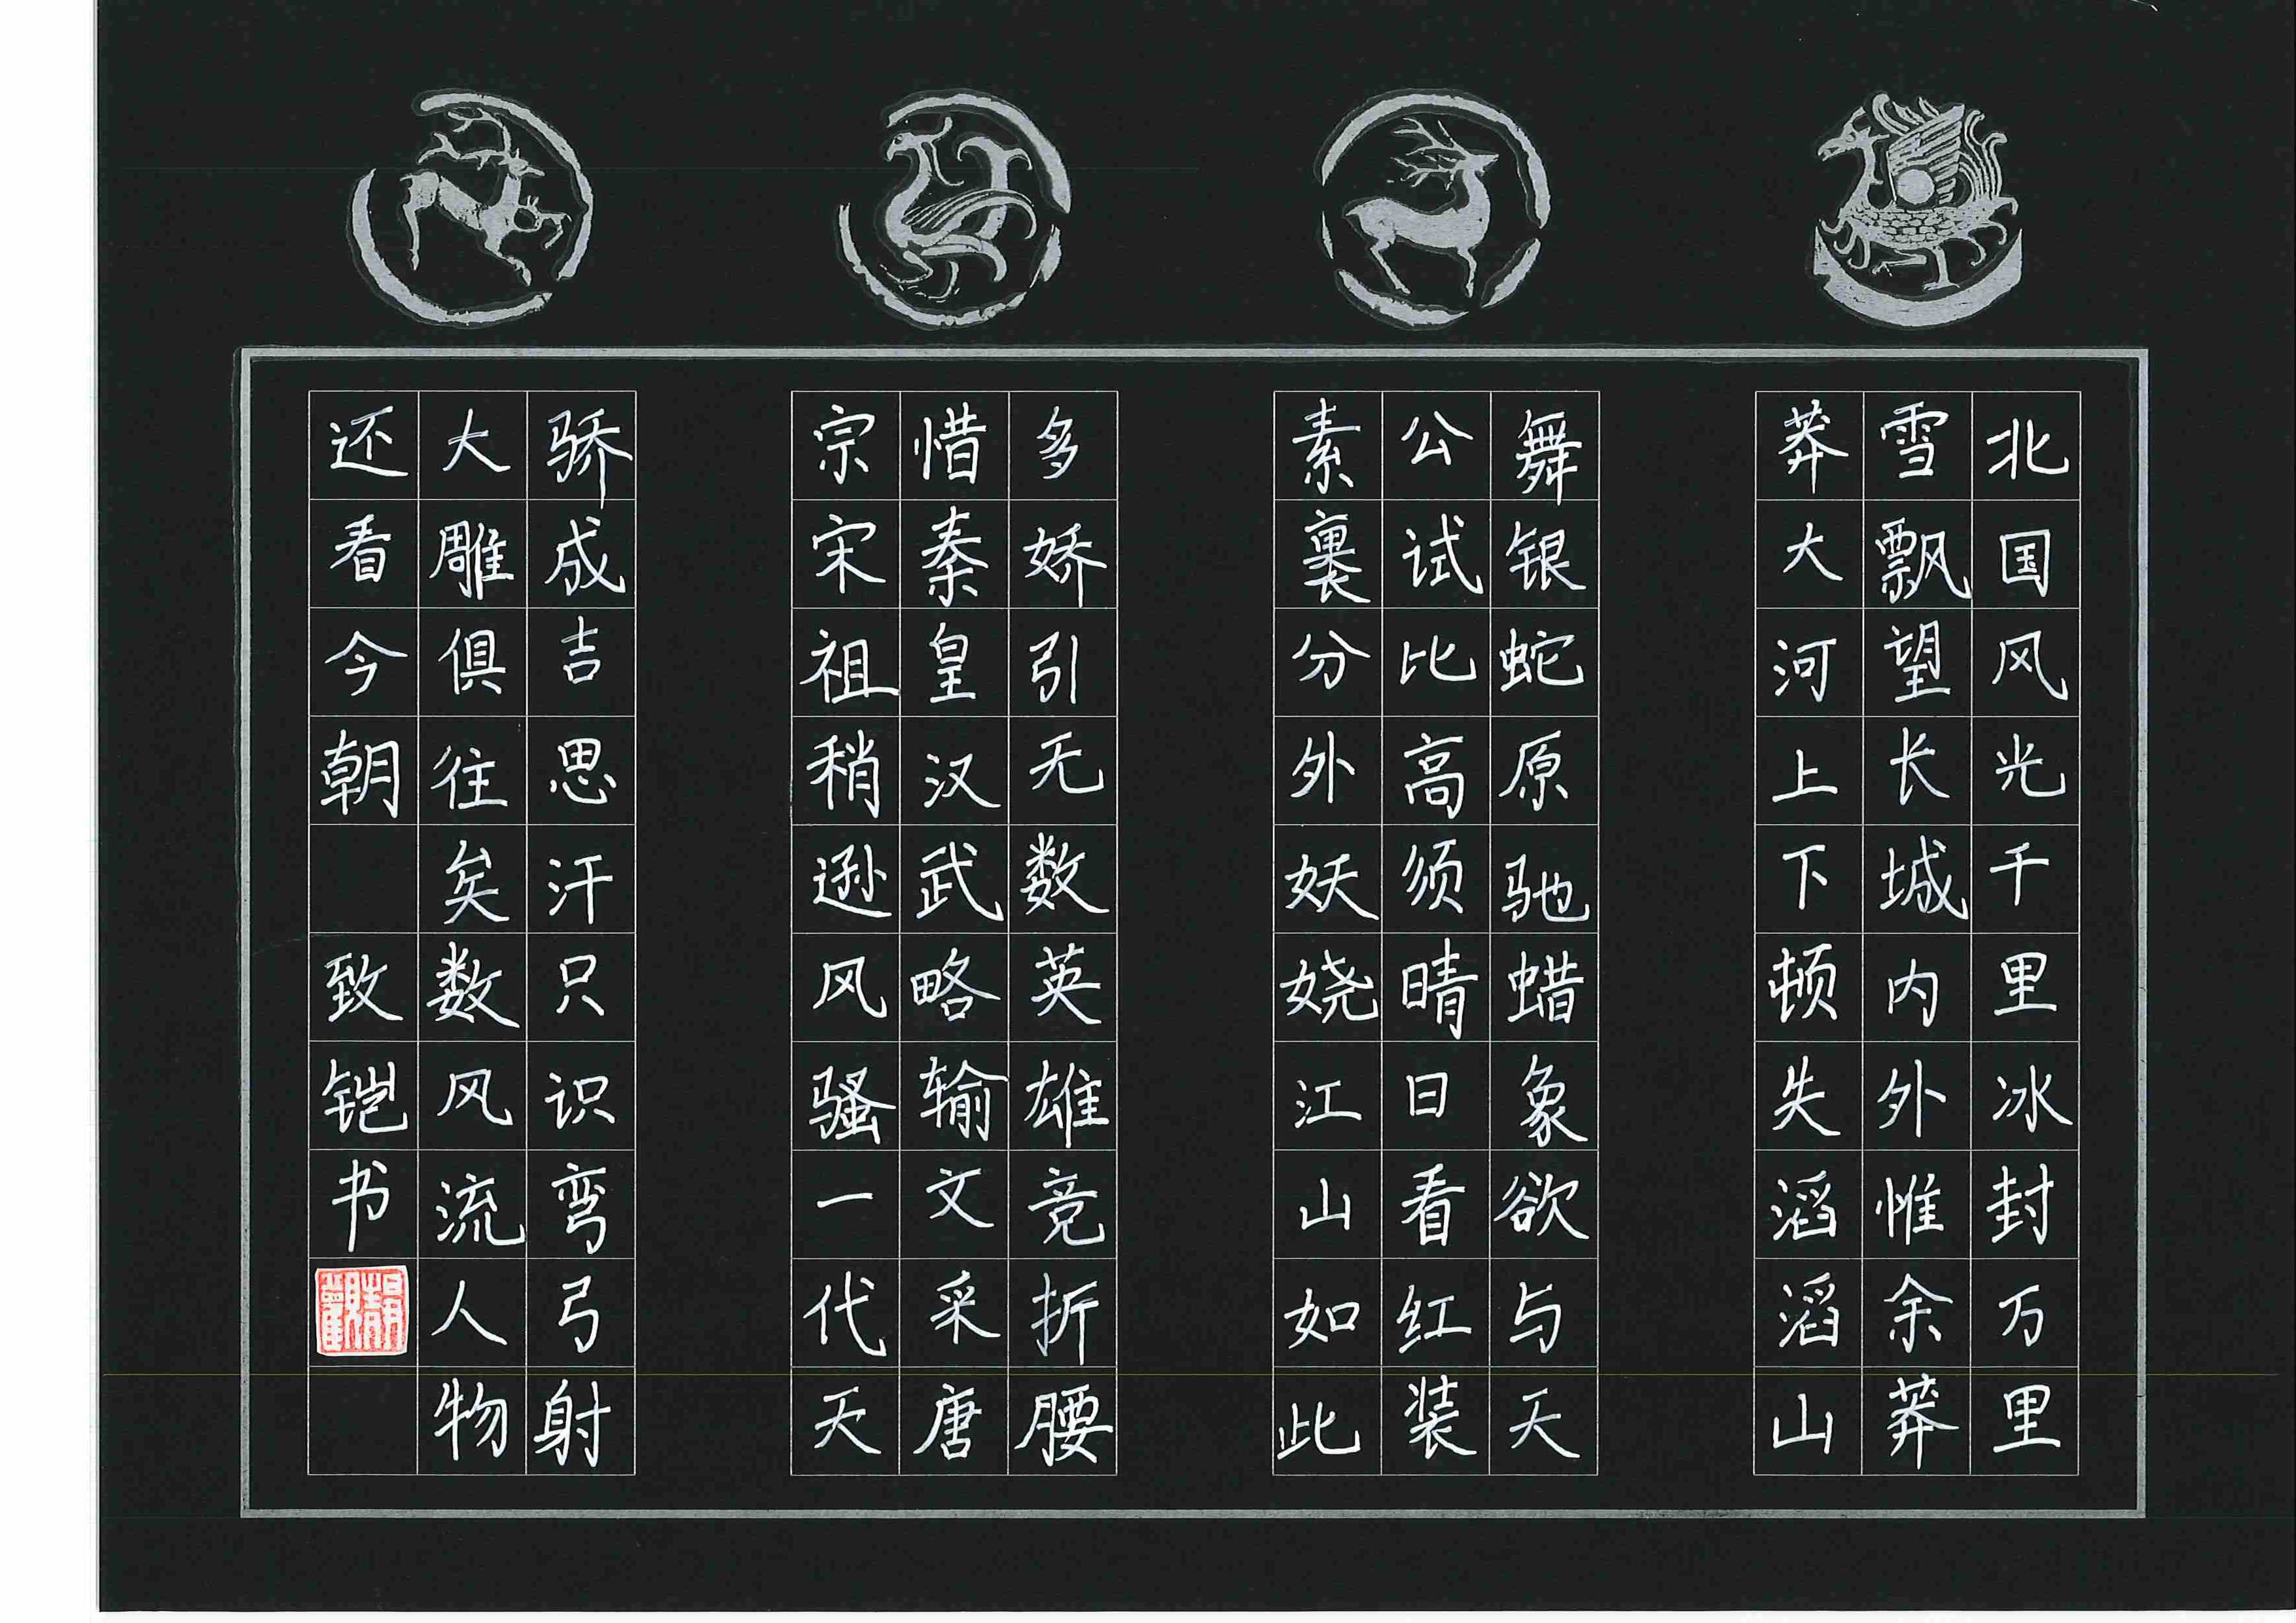 北国风光千里冰封万里
雪飘望长城内外惟余莽
莽大河上下顿失滔滔山
舞银蛇原驰蜡象欲与天
公试比高须晴日看红装
素裹分外妖娆江山如此
多娇引无数英雄竞折腰
惜秦皇汉武略输文采唐
宗宋祖稍逊风骚一代天
骄成吉思汗只识弯弓射
大雕俱往矣数风流人物
还看今朝 致铠书